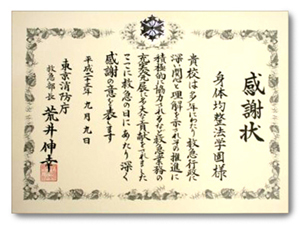 感謝状
身体均整法学園様
貴校は多年にわたり救急行政に
深い関心と理解を示されその推進に
積極的に協力されるなど救急業務の
充実発展に多大な貢献をされました
ここに救急の日にあたり深く
感謝の意を表します
平成二十三年九月九日
東京消防庁
救急部長 荒井伸幸